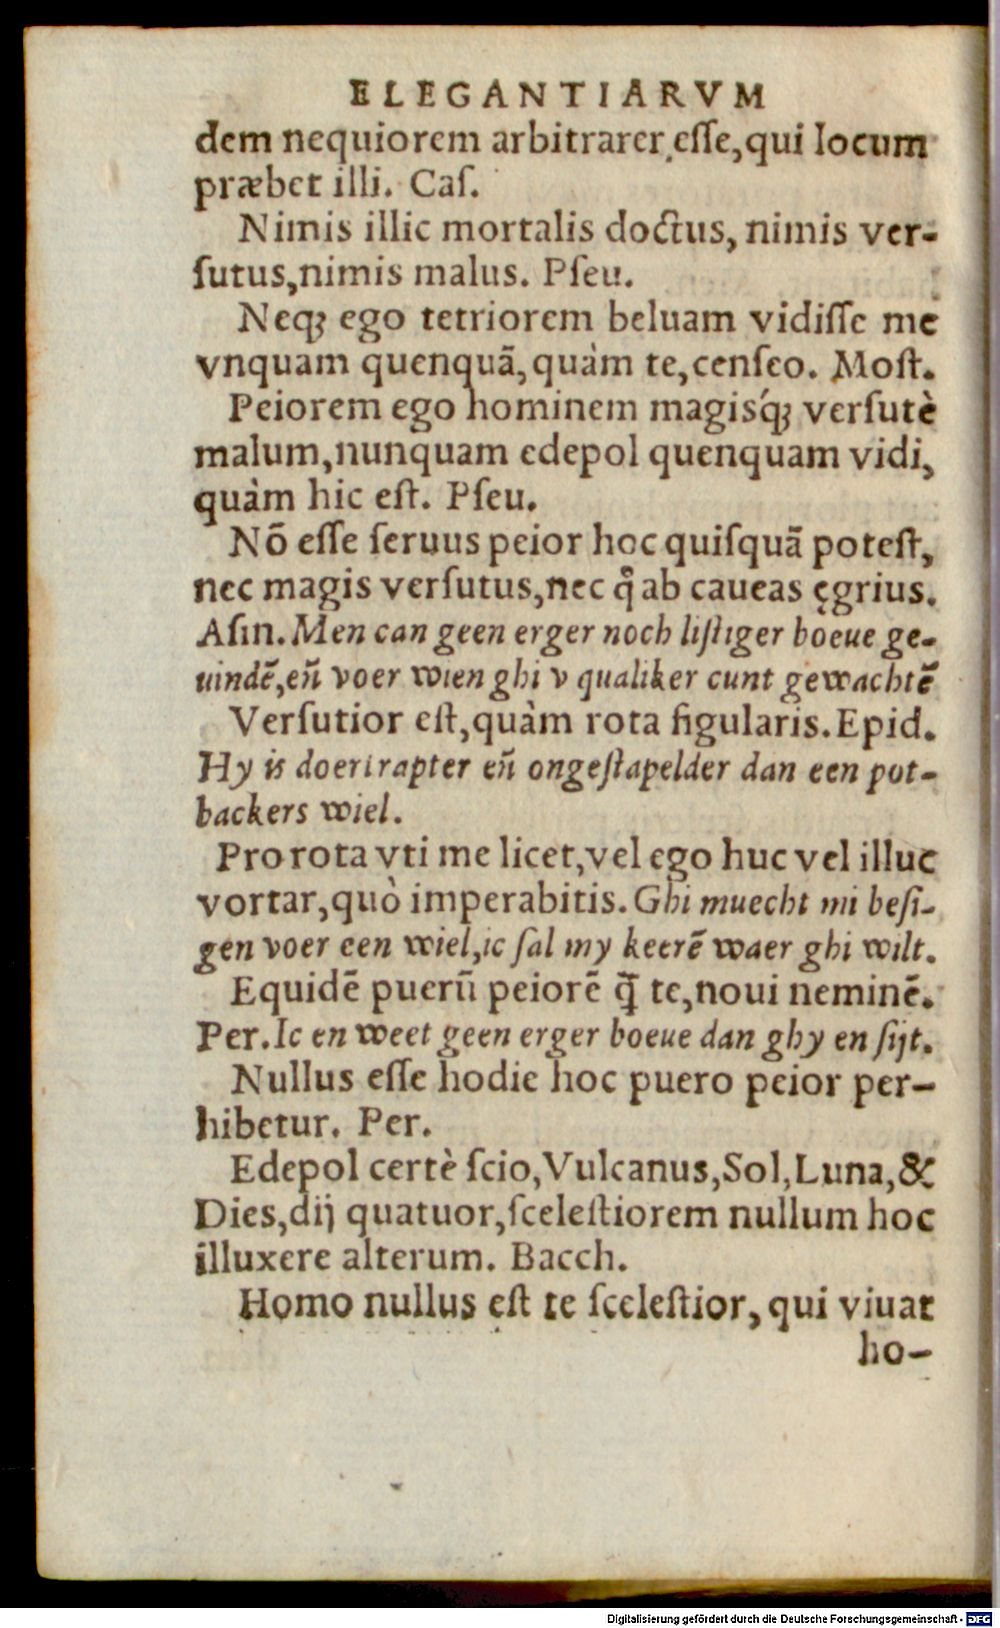 ELEGANTIARVM
dem nequiorem arbitrarer esſe, qui locum
præbet illi. Caſ.
Nimis illic mortalis doctus, nimis ver-
ſutus, nimis malus. Pſeu.
Neq; ego tetriorem beluam vidiſſe me
vnquam quenquã, quàm te, cenſeo. Moſt.
Peiorem ego hominem magisq́; verſutè
malum, nunquam edepol quenquam vidi,
quàm hic eſt. Pſeu.
Nõ eſſe ſeruus peior hoc quiſquã poteſt,
nec magis verſutus, nec q̊ ab caueas ęgrius.
Aſin. Men can geen erger noch liſtiger boeue ge-
uindẽ, eñ voer wien ghi v qualiker cunt gewachtẽ
Verſutior eſt, quàm rota figularis. Epid.
Hy is doertrapter eñ ongeſtapelder dan een pot-
backers wiel.
Pro rota vti me licet, vel ego huc vel illuc
vortar, quò imperabitis. Ghi muecht mi beſi-
gen voer een wiel, ic ſal my keerẽ waer ghi wilt.
Equidẽ puerũ peiorẽ q̃ te, noui neminẽ.
Per. Ic en weet geen erger boeue dan ghy en ſijt.
Nullus eſſe hodie hoc puero peior per-
hibetur. Per.
Edepol certè ſcio, Vulcanus, Sol, Luna, &
Dies, dij quatuor, ſceleſtiorem nullum hoc
illuxere alterum. Bacch.
Homo nullus eſt te ſceleſtior, qui viuat
ho-
Digitalisierung gefördert durch die Deutsche Forschungsgemeinschaft - DFG